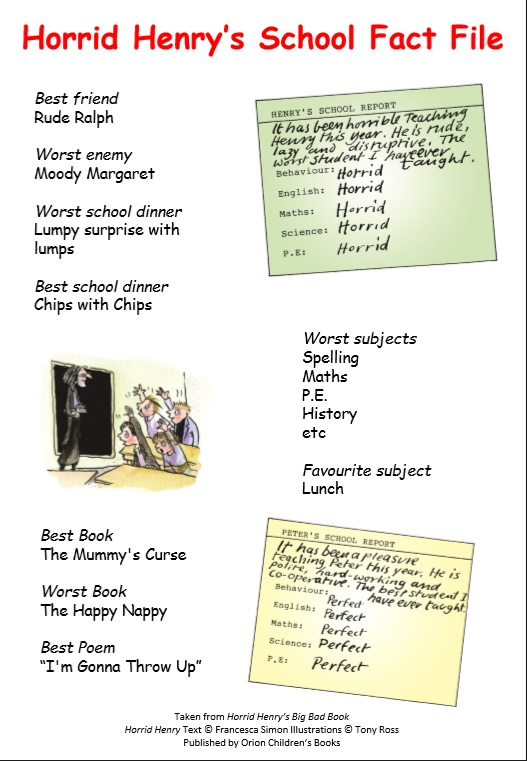 Horrid Henry's School Fact File
Best friend
Rude Ralph
Worst enemy
Moody Margaret
Worst school dinner
Lumpy surprise with
lumps
Best school dinner
Chips with Chips
HENRY'S SCHOOL REPORT
It has been horrible Teaching
Henry this year. He is rude,
lazy and disruptive. The
worst student I have ever taught.
Behaviour: Horrid
English: Horrid
Maths: Horrid
Science: Horrid
P.E: Horrid
Worst subjects
Spelling
Maths
P.E.
History
etc
Favourite subject
Lunch
Best Book
The Mummy's Curse
Worst Book
The Happy Nappy
Best Poem
“I'm Gonna Throw Up”
PETER'S SCHOOL REPORT
It has been a pleasure
teaching Peter this year. He is
polite, hard-working and
co-operative. The best student I
have ever taught.
Behaviour: Perfect
English: Perfect
Maths: Perfect
Science: Perfect
P.E: Perfect
Taken from Horrid Henry's Big Bad Book
Horrid Henry Text © Francesca Simon Illustrations © Tony Ross
Published by Orion Children's Books